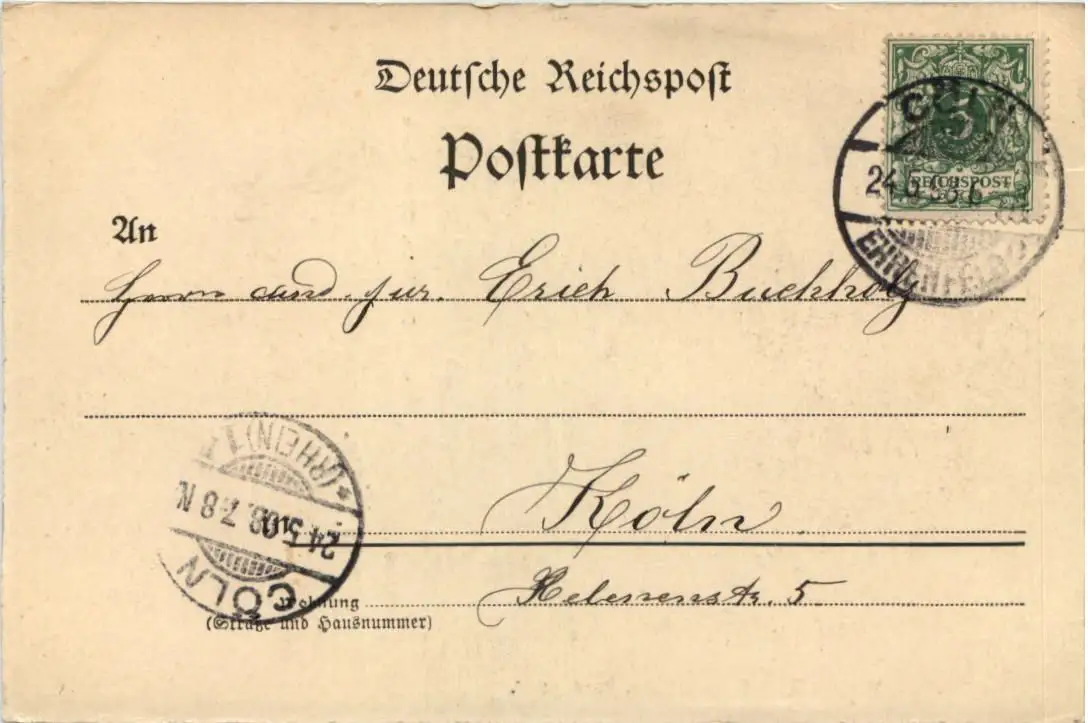 Deutsche Reichspost
Postkarte
5
REICHSPOST
CÖLN
24.5. 6
EHRENFELD
An
Herrn cand. jur. Erich Buchholz
Köln
in
Helenenstr. 5
Wohnung
(Straße und Hausnummer)
CÖLN
24.5.08. 7-8 N.
*(RHEIN)1